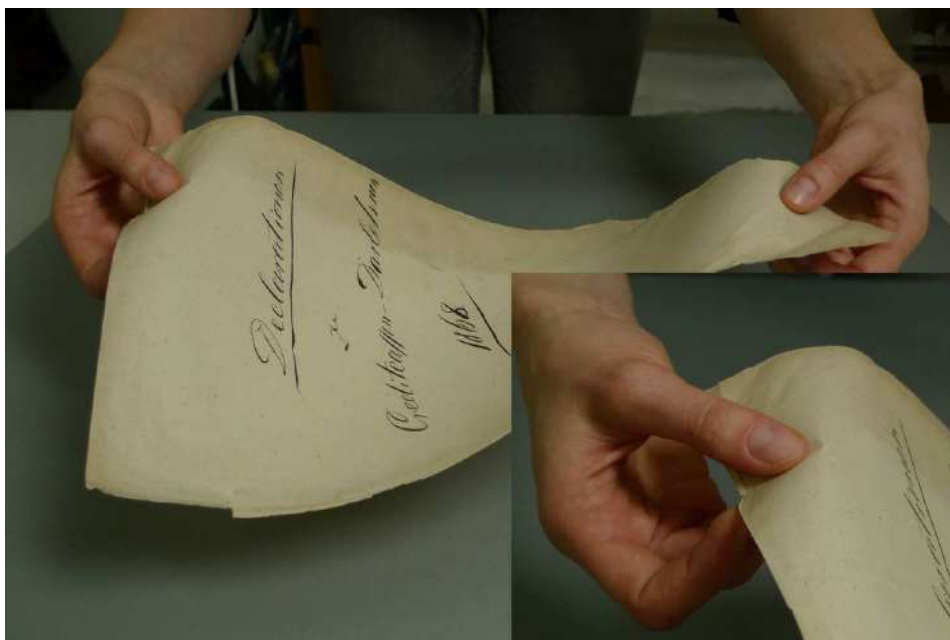 Declarationen
zu
Creditcassen-Darlehen
1868